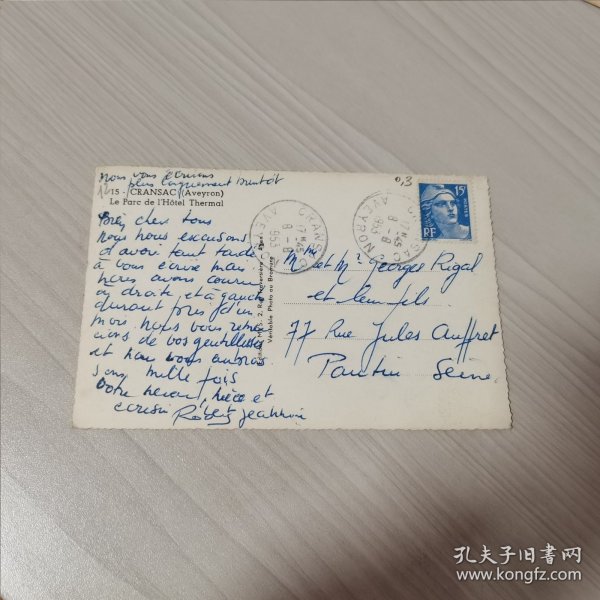 Nous vous écrirons
plus longuement bientôt
15 - CRANSAC (Aveyron)
Le Parc de l'Hôtel Thermal
Bien chers tous
Nous nous excusons
d'avoir tant tardé
à vous écrire mais
nous avons couru
à droite et à gauche
durant près d'un
mois. Nous vous remer
cions de vos gentillesses
et
vous embras
sons mille fois
Votre neveu, nièce et
cousin Robert Jeannine
0,3
15F
POSTES
RF
CRANSAC
AVEYRON
17H45
8 - 8
1953
CRANSAC
AVEYRON
17H45
8 - 8
1953
Véritable Photo au Bromure
Mme et Mr Georges Rigal
et leur fils
77 Rue Jules Auffret
Pantin Seine
孔夫子旧书网
www.kongfz.com